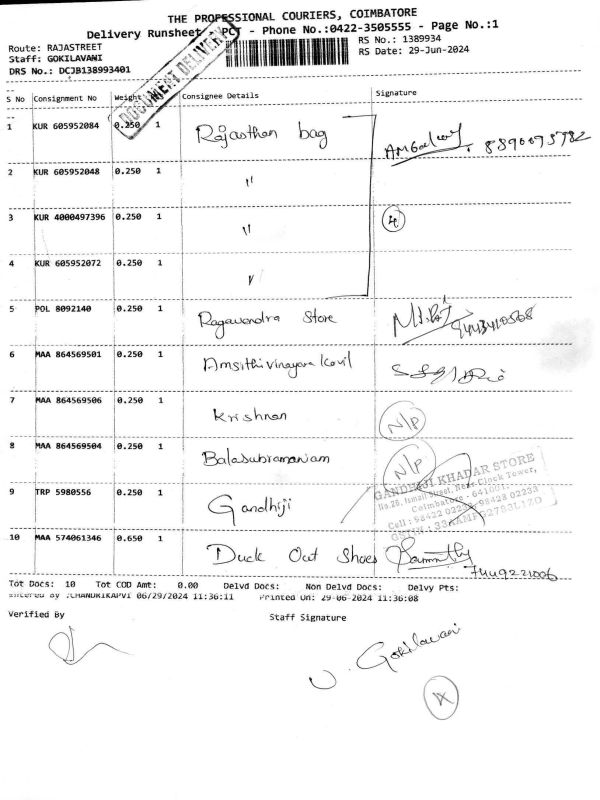 THE PROFESSIONAL COURIERS, COIMBATORE
Delivery Runsheet - PCT - Phone No.:0422-3505555 - Page No.:1
Route: RAJASTREET
Staff: GOKILAVANI
DRS No.: DCJB138993401
RS No.: 1389934
RS Date: 29-Jun-2024
DOCUMENT DELIVERY
S No Consignment No Weight Consignee Details Signature
1 KUR 605952084 0.250 1 Rajasthan bag 8890095782
2 KUR 605952048 0.250 1 "
3 KUR 4000497396 0.250 1 " 4
4 KUR 605952072 0.250 1 "
5 POL 8092140 0.250 1 Ragavendra Store
6 MAA 864569501 0.250 1 Amsithivinayara Kovil
7 MAA 864569506 0.250 1 Krishnan N/P
8 MAA 864569504 0.250 1 Balasubramaniam N/P
9 TRP 5980556 0.250 1 Gandhiji
GANDHIJI KHADAR STORE
No.26, Ismail Street, Near Clock Tower,
Coimbatore - 641001.
Cell : 98422 02233, 98423 02233
10 MAA 574061346 0.650 1 Duck Out Shoes 7449221006
Tot Docs: 10 Tot COD Amt: 0.00 Delvd Docs: Non Delvd Docs: Delvy Pts:
Entered By :CHANDRIKAPVI 06/29/2024 11:36:11 Printed On: 29-06-2024 11:36:08
Verified By Staff Signature
V. Gokilavani